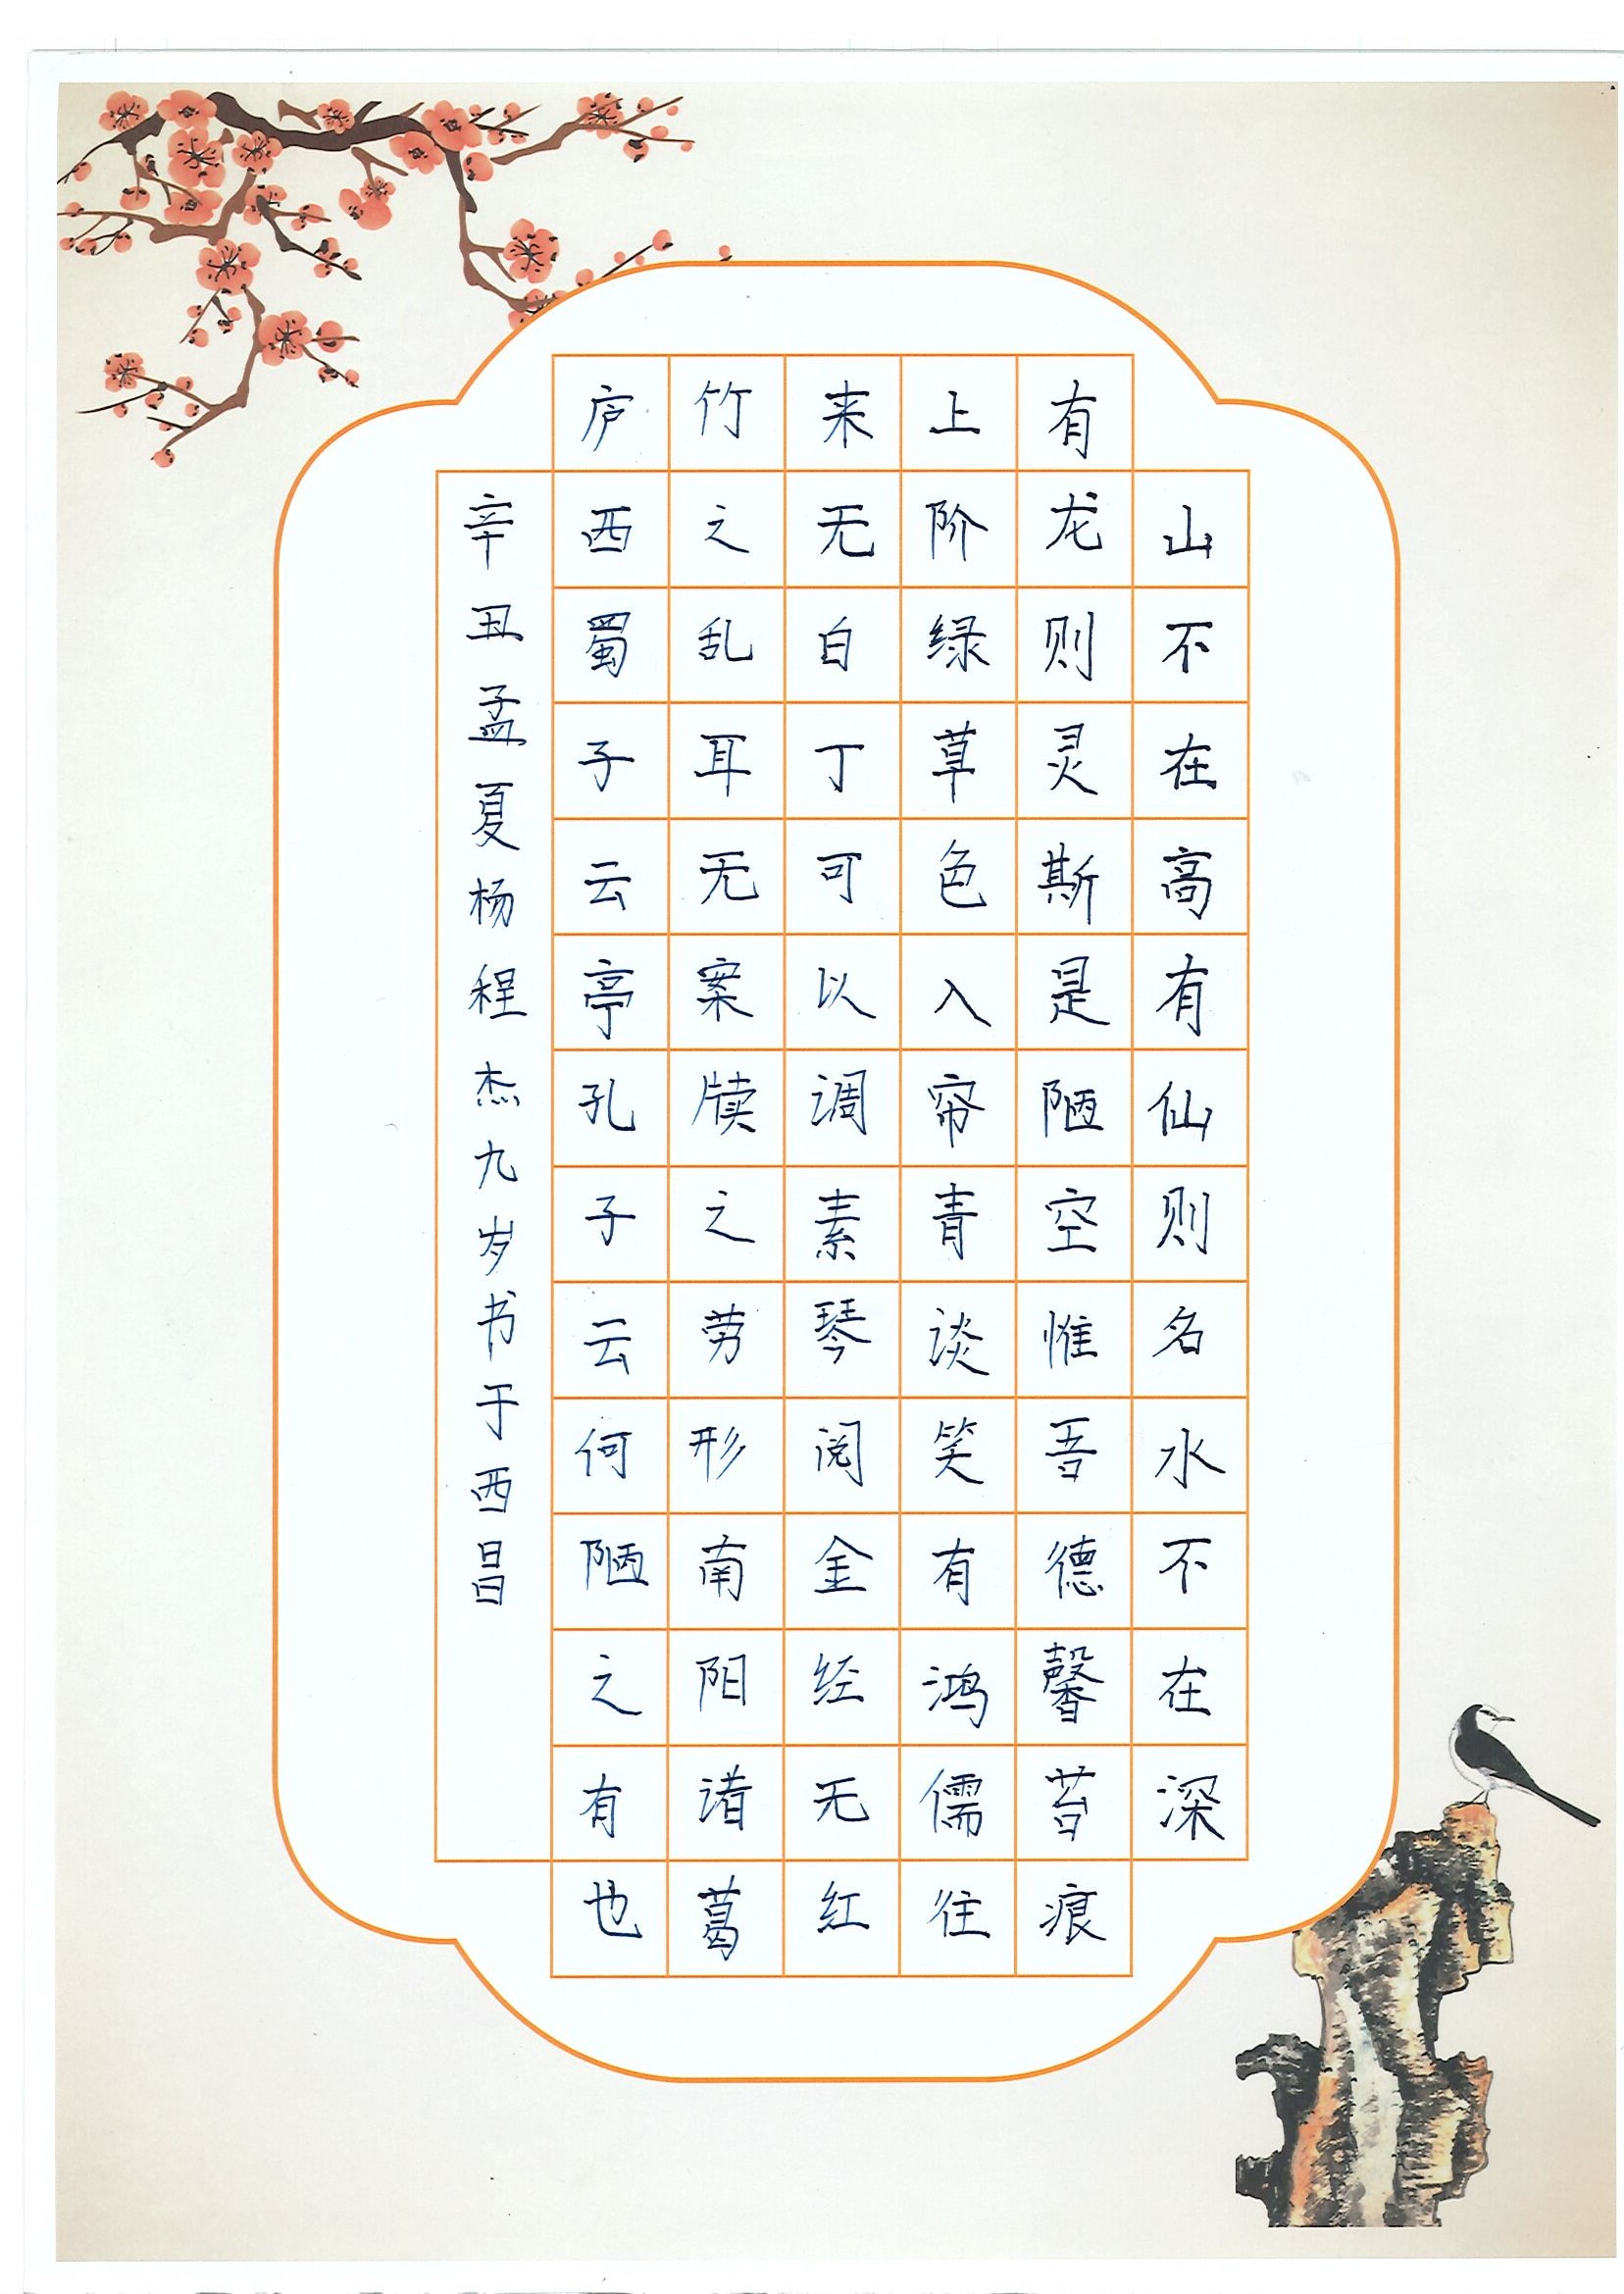 山不在高有仙则名水不在深
有龙则灵斯是陋空惟吾德馨苔痕
上阶绿草色入帘青谈笑有鸿儒往
来无白丁可以调素琴阅金经无红
竹之乱耳无案牍之劳形南阳诸葛
庐西蜀子云亭孔子云何陋之有也
辛丑孟夏杨程杰九岁书于西昌